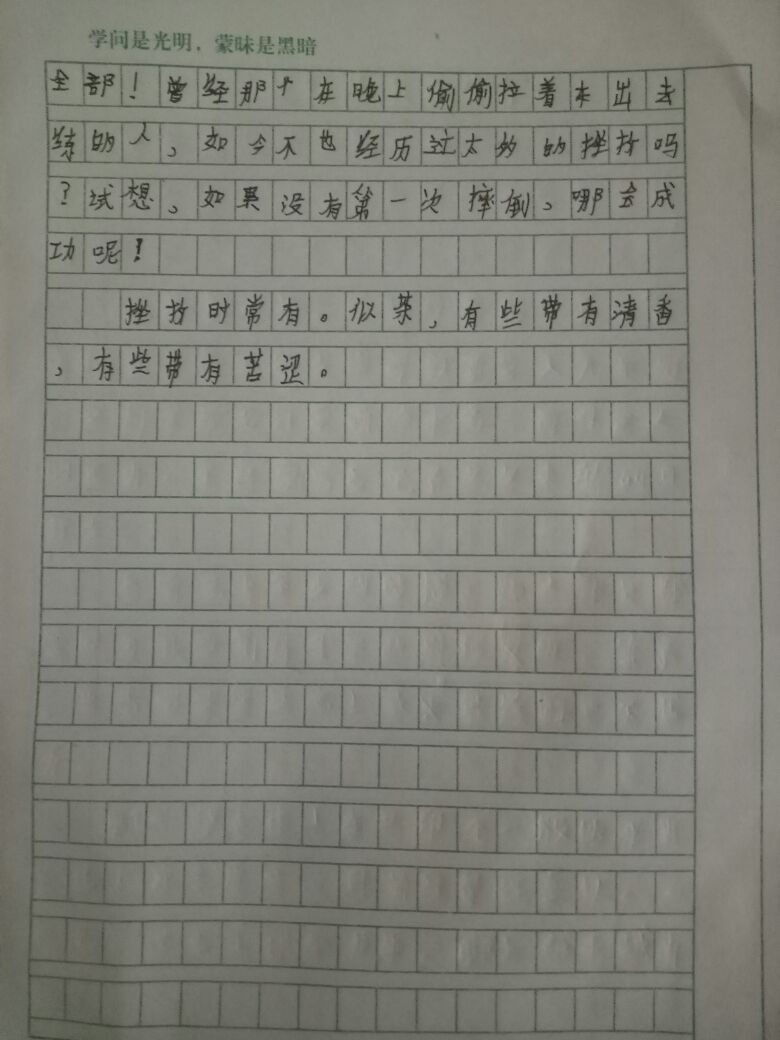 学问是光明，蒙昧是黑暗
全部！曾经那个在晚上偷偷拉着本出去
练的人，如今不也经历过太多的挫折吗
？试想，如果没有第一次摔倒，哪会成
功呢！
挫折时常有。似茶，有些带有清香
，有些带有苦涩。